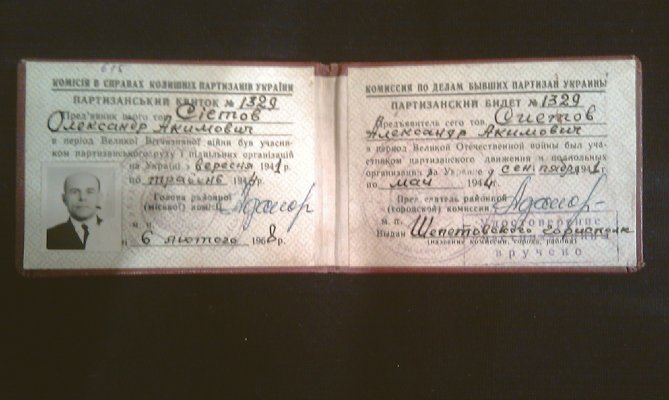 КОМІСІЯ В СПРАВАХ КОЛИШНІХ ПАРТИЗАНІВ УКРАЇНИ
ПАРТИЗАНСЬКИЙ КВИТОК № 1329
Пред'явник цього тов. Сістов
Олександр Акимович
в період Великої Вітчизняної війни був учасни-
ком партизанського руху і підпільних організацій
на Україні з вересня 1941 р.
по травень 1944 р.
Голова районної
(міської) комісії
м. п.
6 лютого 1968 р.
КОМИССИЯ ПО ДЕЛАМ БЫВШИХ ПАРТИЗАН УКРАИНЫ
ПАРТИЗАНСКИЙ БИЛЕТ № 1329
Предъявитель сего тов. Систов
Александр Акимович
в период Великой Отечественной войны был уча-
стником партизанского движения и подпольных
организаций на Украине с сентября 1941 г.
по май 1944 г.
Председатель районной
(городской) комиссии
м. п. удостоверение
Выдан Шепетовского горисполк
(название комиссии, города, района)
вручено